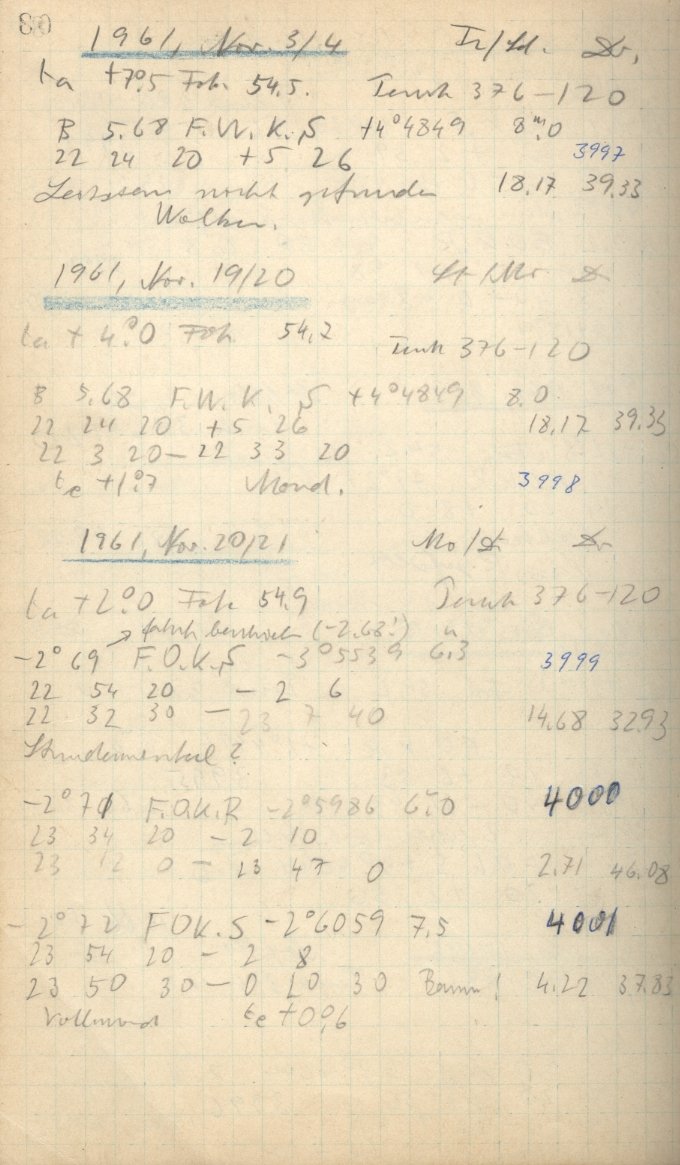 80
1961, Nov. 3/4 Tr/Sd. Dr.
ta +7°.5 Fok. 54.5. Temh 376-120
B 5.68 F.W.K.S +4°4849 8ᵐ.0
22 24 20 +5 26 3997
nicht gefunden 18.17 39.33
Wolken.
1961, Nov. 19/20
ta + 4°.0 Fok 54.2 376-120
B 5.68 F.W.K. S +4°4849 8.0
22 24 20 +5 26 18.17 39.33
22 3 20 - 22 33 20
te +1°.7 Mond. 3998
1961, Nov. 20/21 Mo/St Dr
ta +2°.0 Fok. 54.9 376-120
falsch (-2.68!)
-2°69 F.O.K.S -3°5539 6.3 3999
22 54 20 - 2 6
22 32 30 - 23 7 40 14.68 32.93
Stundenwinkel?
-2°71 F.O.K.R -2°5986 6ᵐ.0 4000
23 34 20 - 2 10
23 12 0 - 23 47 0 2.71 46.08
-2°72 FOK.S -2°6059 7.5 4001
23 54 20 - 2 8
23 50 30 - 0 20 30 Baum! 4.22 37.83
Vollmond te +0°.6